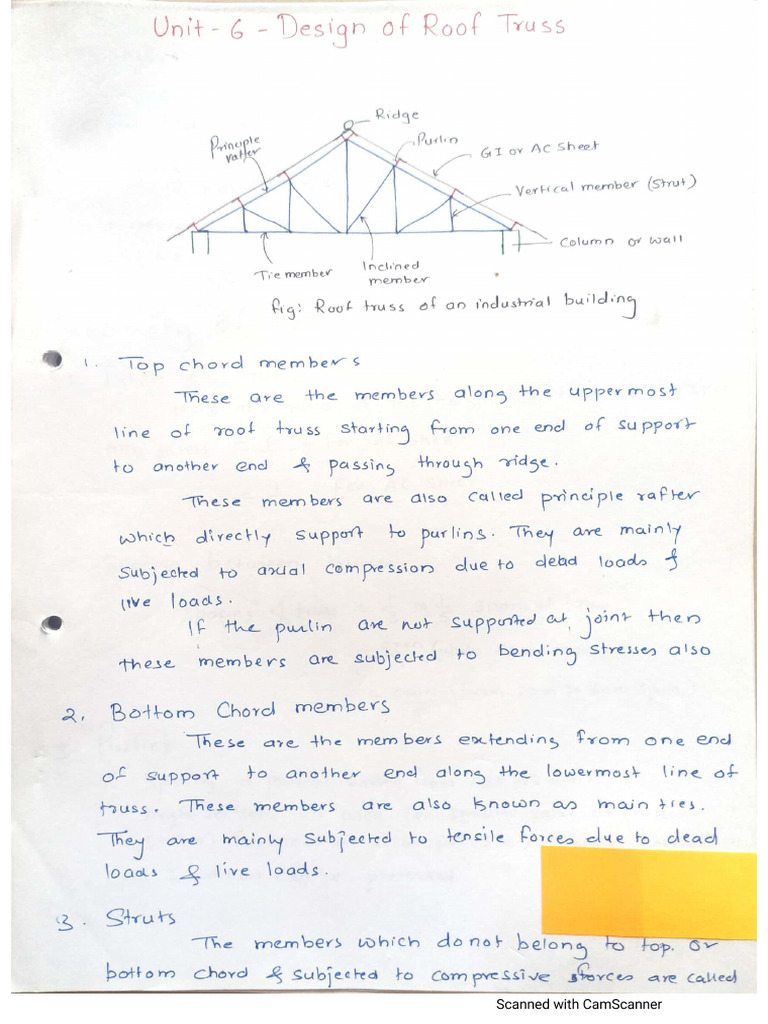 Unit - 6 - Design of Roof Truss
Ridge
Principle
rafter
Purlin
GI or AC Sheet
Vertical member (Strut)
Column or Wall
Tie member
Inclined
member
fig: Roof truss of an industrial building
1. Top chord members
These are the members along the uppermost
line of roof truss starting from one end of support
to another end & passing through ridge.
These members are also called principle rafter
which directly support to purlins. They are mainly
subjected to axial compression due to dead loads &
live loads.
If the purlin are not supported at joint then
these members are subjected to bending stresses also
2. Bottom Chord members
These are the members extending from one end
of support to another end along the lowermost line of
truss. These members are also known as main ties.
They are mainly subjected to tensile forces due to dead
loads & live loads.
3. Struts
The members which do not belong to top or
bottom chord & subjected to compressive forces are called
Scanned with CamScanner